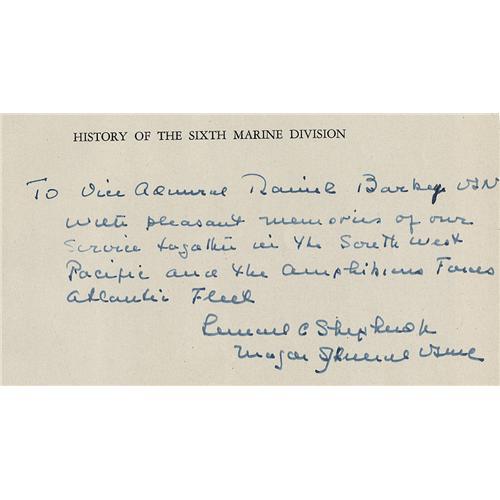 HISTORY OF THE SIXTH MARINE DIVISION
To Vice Admiral Daniel Barbey USN
With pleasant memories of our
Service together in the South West
Pacific and the Amphibious Forces
Atlantic Fleet
Lemuel C Shepherd
Major General USMC